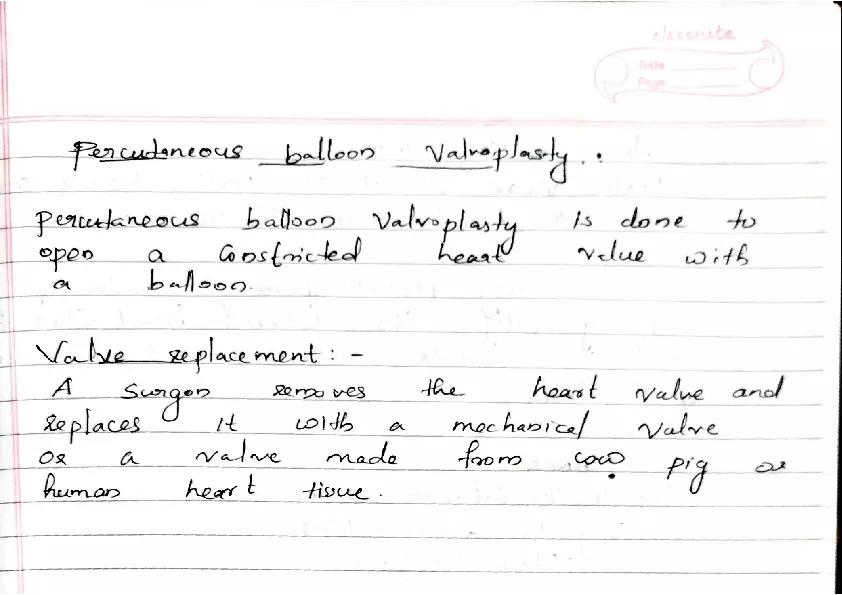 classmate
Date
Page
Percutaneous balloon Valvoplasty :
Percutaneous balloon Valvoplasty is done to
open a constricted heart valve with
a balloon.
Valve replacement : -
A surgon removes the heart valve and
replaces it with a mechanical valve
or a valve made from cow pig or
human heart tissue.